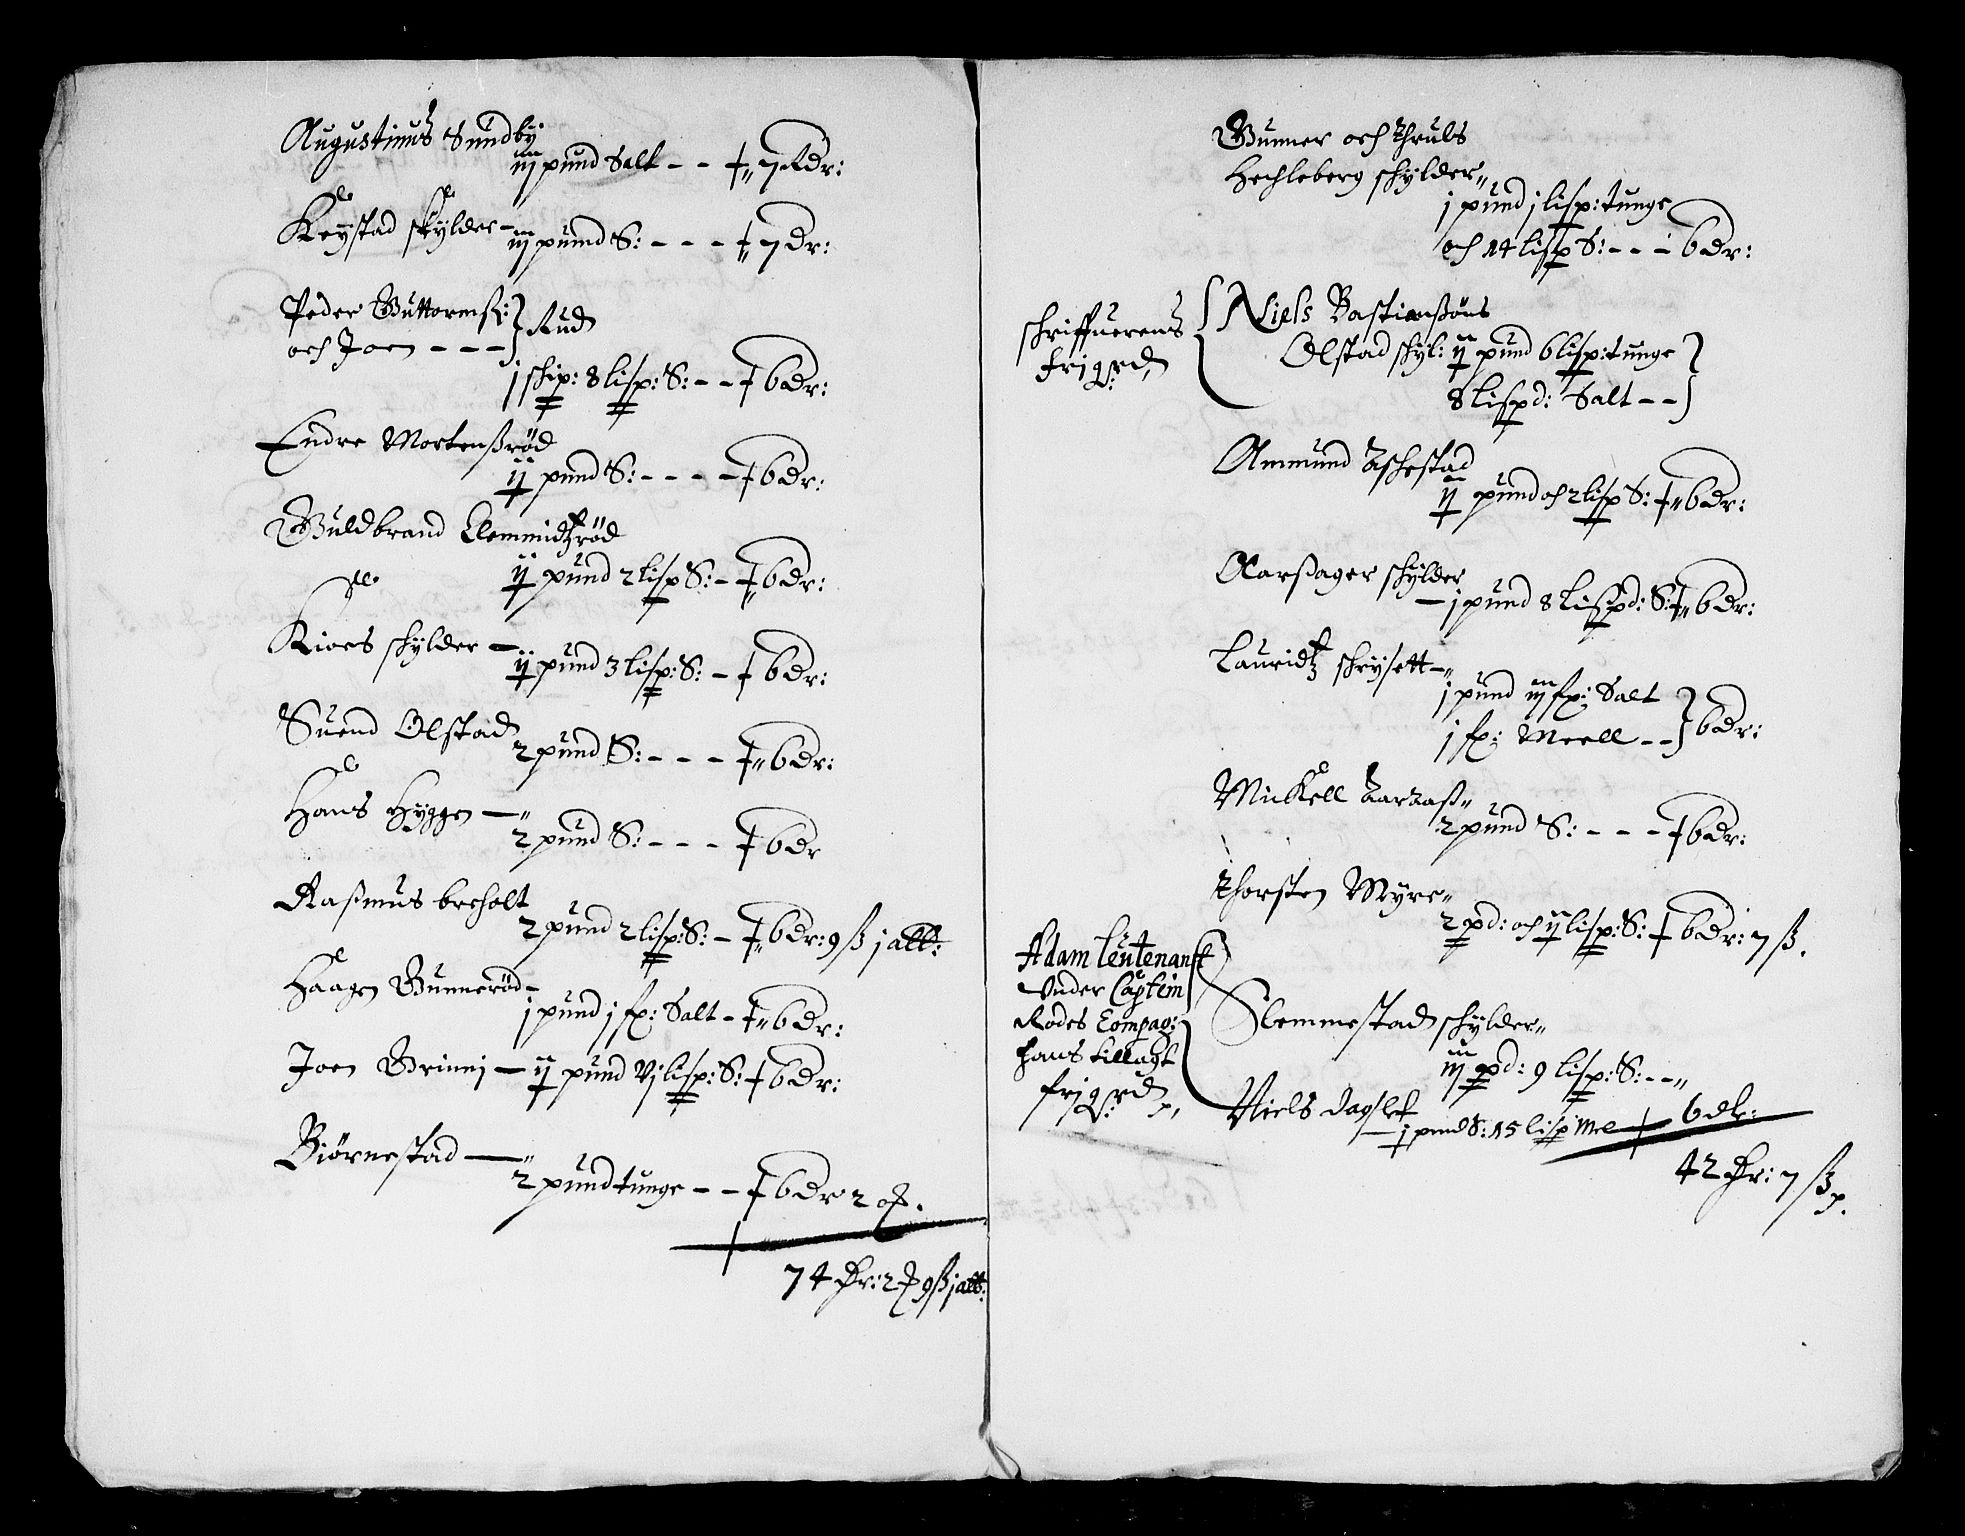 Augustinus Sundby
iij pund Salt - - 7 Rdr:
Keystad skylder -
iij pund S: - - - 7 dr:
Peder Guttormß: } Rud
och Joen - - -
j schip: 8 lisp: S: - - 6 dr:
Endre Mortenßröd
ij pund S: - - - - 6 dr:
Guldbrand Clemmidtzröd
ij pund 2 lisp S: - 6 dr:
Kioes schylder -
ij pund 3 lisp: S: - 6 dr:
Suend Olstad
2 pund S: - - - 6 dr:
Hans Hyggen -
2 pund S: - - - 6 dr
Raßmus becholt
2 pund 2 lisp: S: - 6 dr: 9 ß j alb:
Haagen Gunneröd -
j pund j fx: Salt - 6 dr:
Joen Grinni - ij pund vj lisp: S: 6 dr:
Biörnestad -
2 pund tunge - - 6 dr 2 ort.
74 dr: 2 ort 9 ß j alb:
Gunner och thruls
Hechleberg schylder
j pund j lisp: tunge
och 14 lisp S: - - - 6 dr:
schriffuerens
frigrd
Niels Bastianßöns
Olstad schyl: ij pund 6 lisp: tunge
8 lispd: Salt - -
Ammund Aschestad
ij pund och 2 lisp S: 6 dr:
Aarßager schylder
- j pund 8 lispd: S: 6 dr:
Lauridtz schrysett -
j pund iij fx: Salt
j fx: Meell - - } 6 dr:
Mickell
2 pund S: - - - 6 dr:
thorsten Myre
2 pd: och ij lisp: S: 6 dr: 7 ß.
Adam leutenant
Under Captein
Rodes Compag:
hans tillagt
frigrd
Slemmestad schylder
iij pd: 9 lisp: S: - -
Niels dagslet
- j pund S: 15 lisp Mel 6 dr:
42 dr: 7 ß